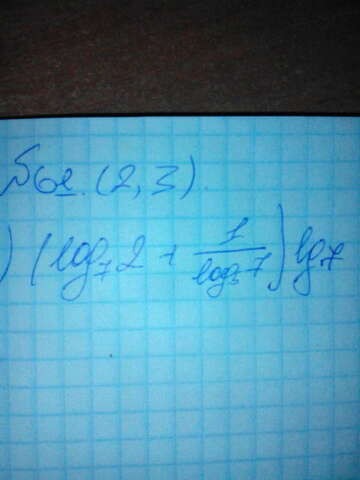 №62. (2,3).
) (log₇2 + 1/log₅7) lg7